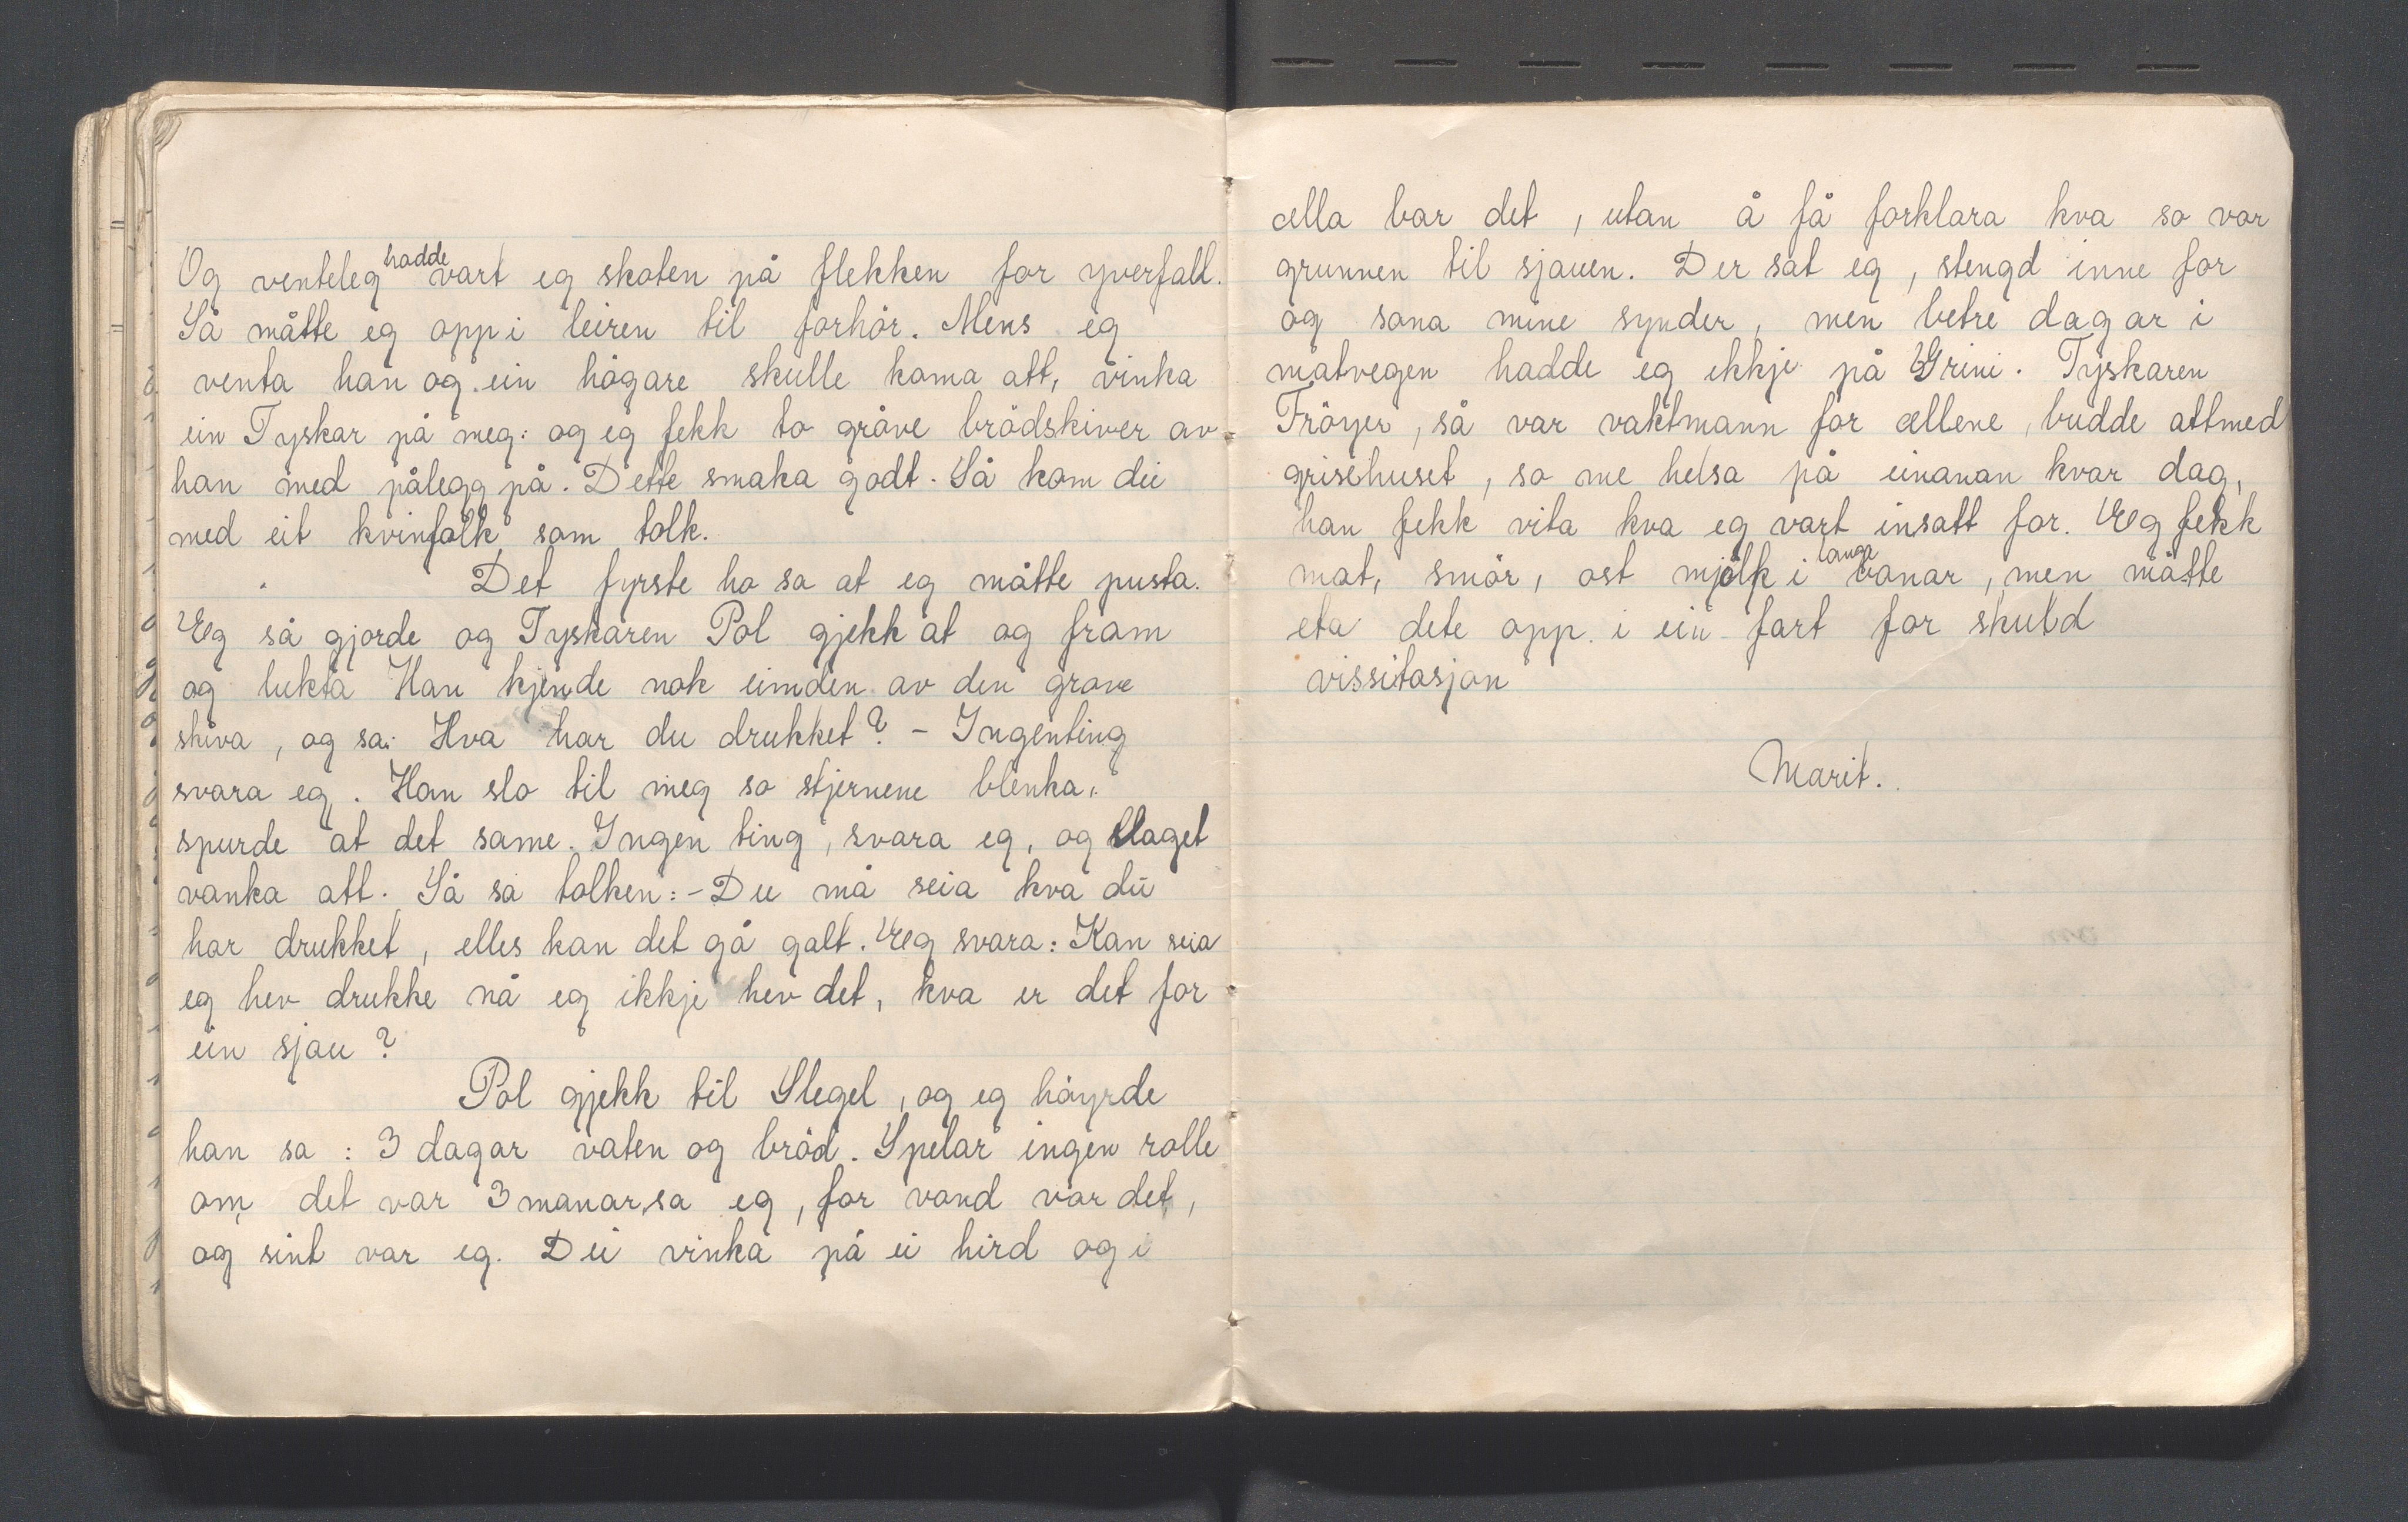 Og venteleg hadde vart eg skoten på flekken for yverfall.
Så måtte eg opp i leiren til forhör. Mens eg
venta han og ein högare skulle koma att, vinka
ein Tyskar på meg: og eg fekk to gråve brödskiver av
han med pålegg på. Dette smaka godt. Så kom dei
med eit kvinfolk som tolk.
Det fyrste ho sa at eg måtte pusta.
Eg så gjorde og Tyskaren Pol gjekk at og fram
og lukta Han kjende nok eimden av den grove
skiva, og sa: Hva har du drukket? - Ingenting
svara eg. Han slo til meg so stjernene blenka,
spurde at det same. Ingen ting, svara eg, og slaget
vanka att. Så sa tolken: - Du må seia kva du
har drukket, elles kan det gå galt. Eg svara: Kan seia
eg hev drukke nå eg ikkje hev det, kva er det for
ein sjau?
Pol gjekk til Slegel, og eg höyrde
han sa: 3 dagar vaten og bröd. Spelar ingen rolle
om det var 3 manar, sa eg, for vond var det,
og sint var eg. Dei vinka på ei hird og i
cella bar det, utan å få forklara kva so var
grunnen til sjauen. Der sat eg, stengd inne for
og sona mine synder, men betre dagar i
matvegen hadde eg ikkje på Grini. Tyskaren
Fröyer, så var vaktmann for cellene, budde attmed
grisehuset, so me helsa på einanan kvar dag,
han fekk vita kva eg vart insatt for. Eg fekk
mat, smör, ost mjölk i lange banar, men måtte
eta dete opp i ein fart for skuld
vissitasjon
Marit.